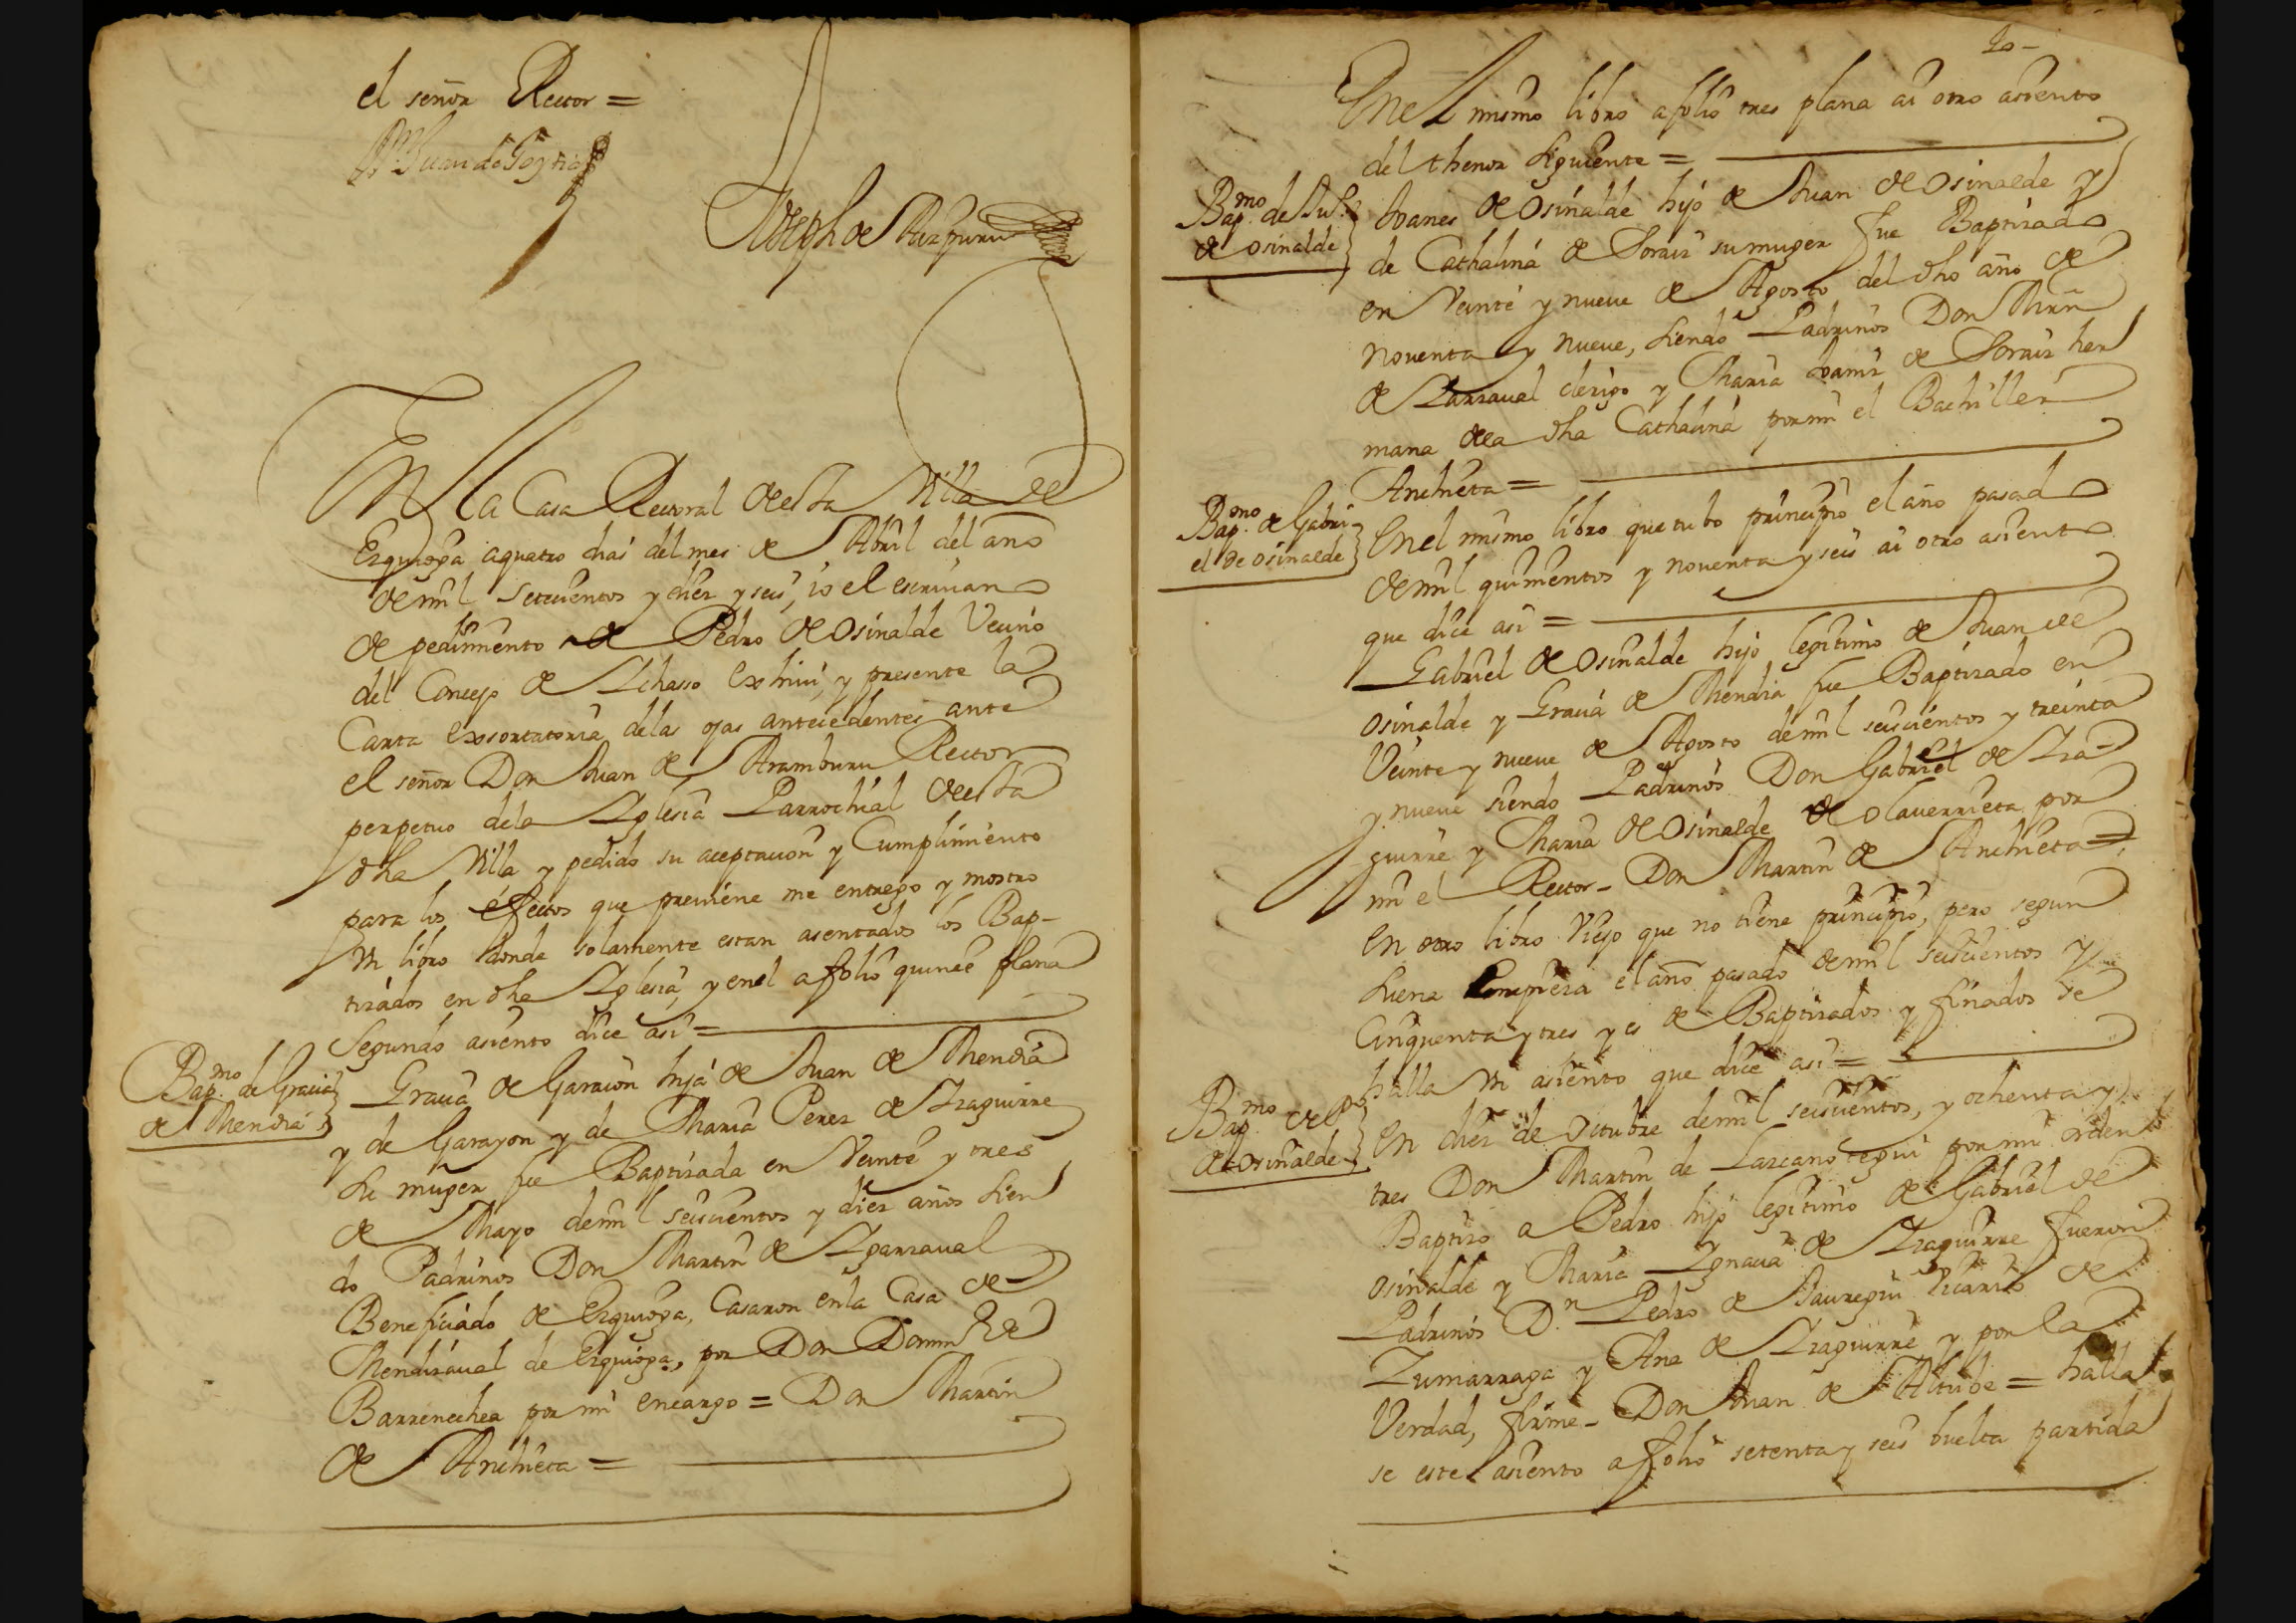 el señor Rector =
Joseph de Aizpuru
En la Casa Rectoral de esta Villa de
Ezquioga a quatro dias del mes de Abril del año
de mil setecientos y diez y seis, io el escrivano
de pedimiento de Pedro de Osinalde Vecino
del Concejo de Ichasso exhivi, y presente la
Carta exsortatoria delas ojas antecedentes ante
el señor Don Juan de Aramburu Rector
perpetuo dela Iglesia Parrochial de esta
dha Villa y pedido su aceptacion y Cumplimiento
para los efectos que previene me entrego y mostro
Vn libro donde solamente estan asentados los Bap-
tizados en dha Iglesia, y en el a folio quince plana
Segundo asiento dice asi =
Bap.mo de Gracia
de Mendia
Gracia de Garaion hija de Juan de Mendia
y de Garayon y de Maria Perez de Izaguirre
su muger fue Baptizada en Veinte y tres
de Mayo de mil seiscientos y diez años sien
do Padrinos Don Martin de Igarzaval
Beneficiado de Ezquioga, Casaron en la Casa de
Mendizaval de Ezquioga, por Don Domin de
Barrenechea por mi encargo = Don Martin
de Anchieta =
En el mismo libro a folio tres plana ai otro asiento
del thenor siguiente =
Bap.mo de Ju.
de osinalde
Joanes de Osinalde hijo de Juan de Osinalde y
de Cathalina de Soraiz su muger fue Baptizado
en Veinte y nueve de Agosto del dho año de
noventa y nueve, siendo Padrinos Don Mrn
de Larraval clerigo y Maria de Soraiz her
mana dela dha Cathalina por mi el Bachiller
Anchieta =
Bap.mo de Gabri
el de osinalde
En el mismo libro que tubo principio el año pasado
de mil quinientos y noventa y seis ai otro asiento
que dice asi =
Gabriel de Osinalde hijo legitimo de Juan de
Osinalde y Gracia de Mendia fue Baptizado en
Veinte y nueve de Agosto de mil seiscientos y treinta
y nueve siendo Padrinos Don Gabriel de Iza-
guirre y Maria de Osinalde de Olaverrieta, por
mi el Rector - Don Martin de Anchieta =
En otro libro Viejo que no tiene principio, pero segun
suena Compieza el año pasado de mil seiscientos y
Cinquenta y tres y es de Baptizados y finados se
halla Vn asiento que dice asi =
Bap.mo de P.o
de Osinalde
En diez de Octubre de mil seiscientos, y ochenta y
tres Don Martin de Lazcanotegui por mi orden
Baptizo a Pedro hijo legitimo de Gabriel de
Osinalde y Maria Ignacia de Izaguirre fueron
Padrinos D.n Pedro de Jauregui Vicario de
Zumarraga y Ana de Izaguirre y por la
Verdad, firme - Don Juan de Altube = halla
se este asiento a folio setenta y seis buelta partida